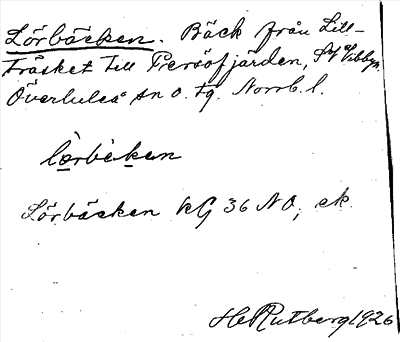 Lörbäcken. Bäck från Lill-
träsket till Persöfjärden, SV Vibbyn
Överluleå sn o. tg. Norrb. l.
lœrbèken
Lörbäcken kG 36 NO, ek.
HelRutberg 1926